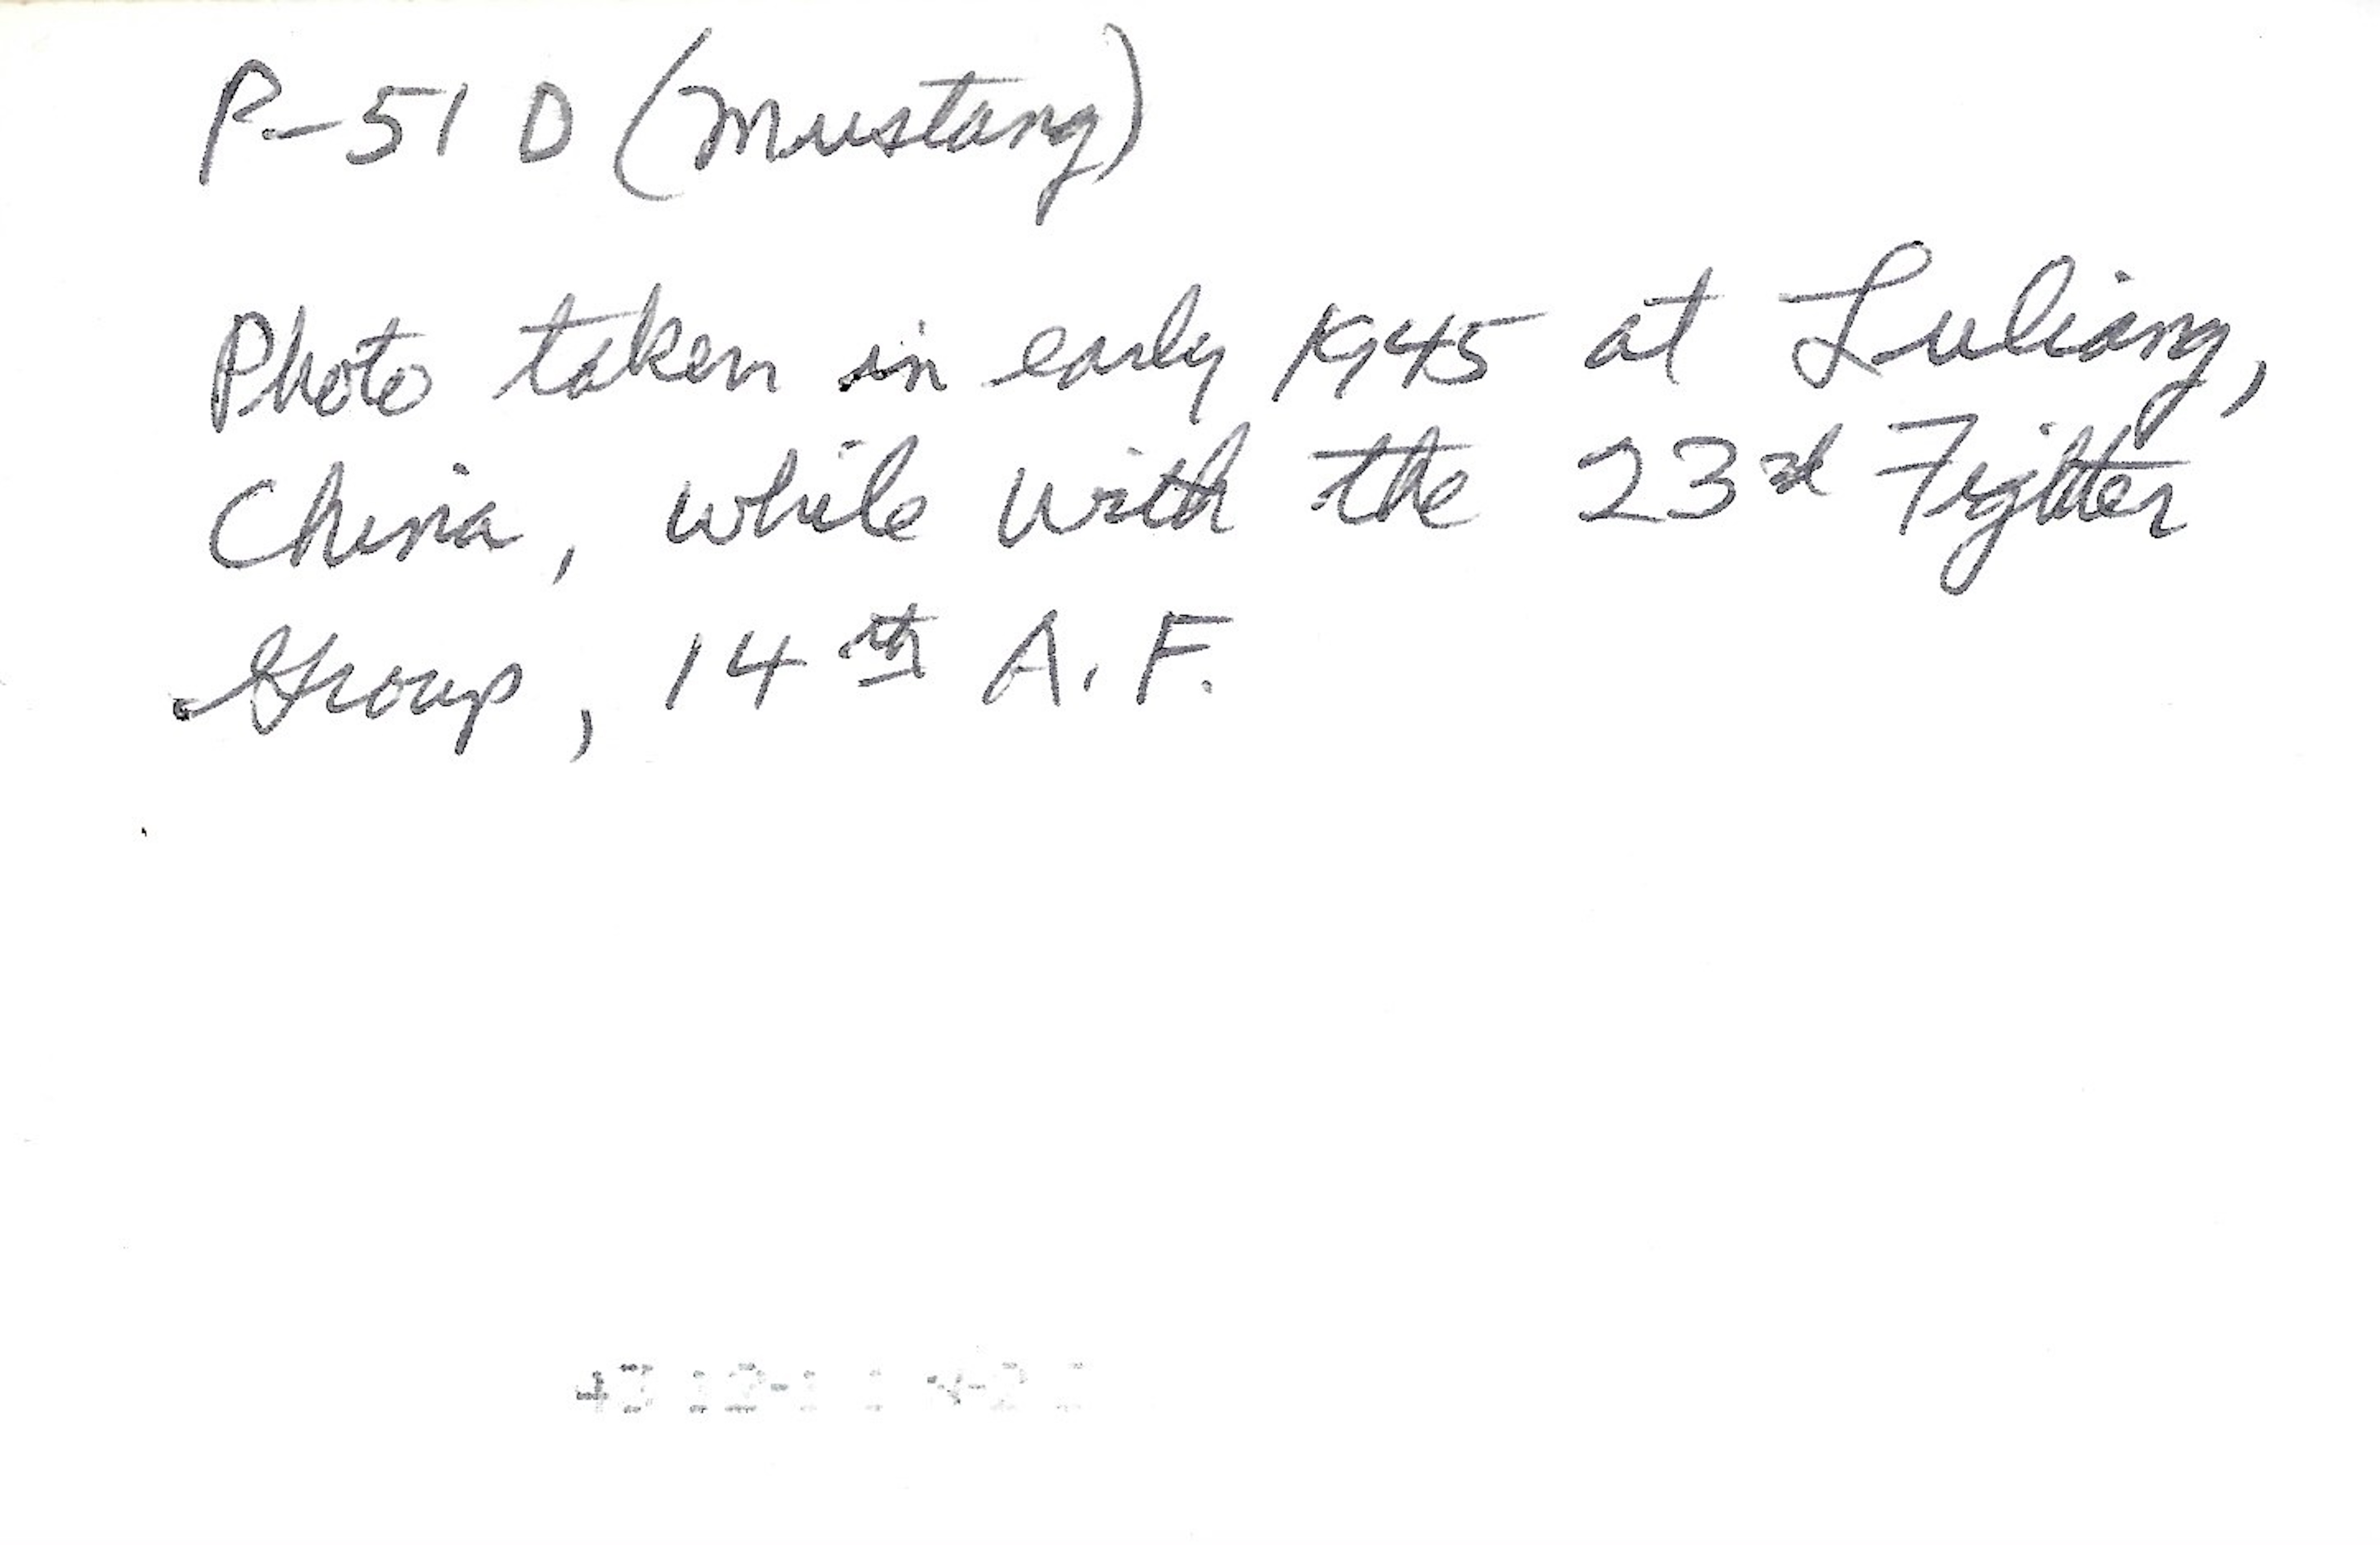 P-51 D (Mustang)
Photo taken in early 1945 at Luliang,
China, while with the 23rd Fighter
Group, 14th A.F.